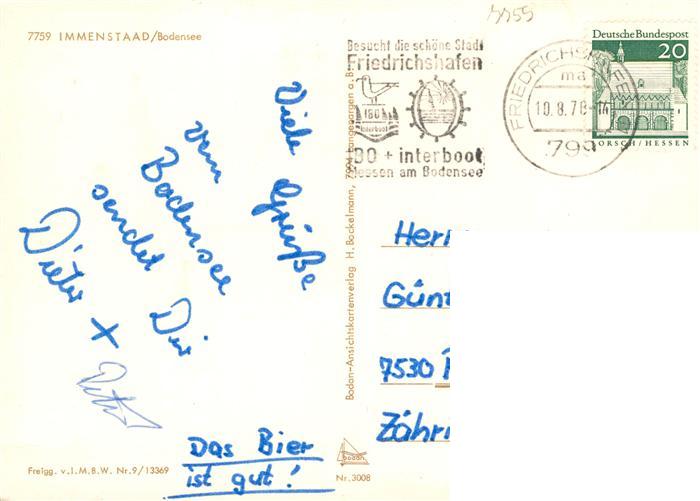 7759 IMMENSTAAD/Bodensee
Viele Grüße
vom
Bodensee
sendet Dir
Dieter +
Das Bier
ist gut!
Freigg. v. I.M.B.W. Nr. 9/13369
Bodan-Ansichtskartenverlag H. Bockelmann,
bodan
Nr. 3008
Besucht die schöne Stadt
Friedrichshafen
IBO
interboot
IBO + interboot
Messen am Bodensee
10.8.70
799
Deutsche Bundespost
20
LORSCH/HESSEN
Herr
Günt
7530
Zähri